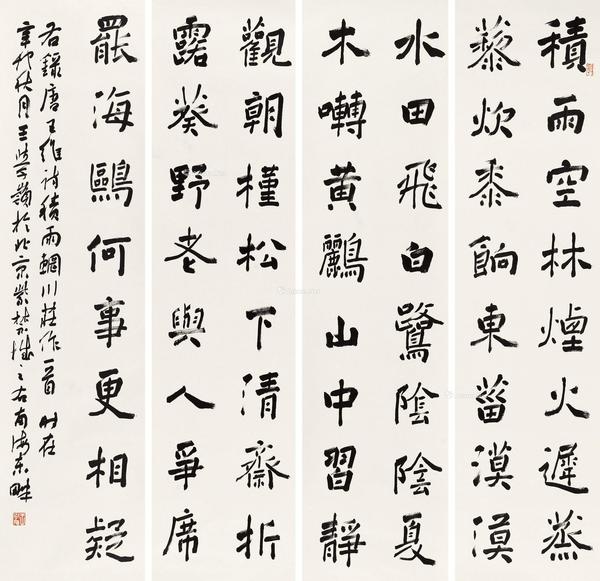 積雨空林煙火遲蒸
藜炊黍餉東菑漠漠
水田飛白鷺陰陰夏
木囀黄鸝山中習靜
觀朝槿松下清齋折
露葵野老與人爭席
罷海鷗何事更相疑
右錄唐王維詩積雨輞川莊作一首 時在
辛卯秋月王學嶺於北京紫禁城之右南海東畔